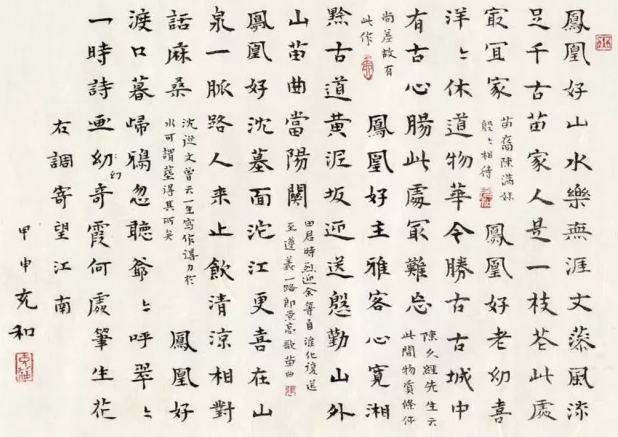 鳳凰好山水樂無涯文藻風流
足千古苗家人是一枝花此處
最宜家
苗裔陳滿妹
殷〻相待
鳳凰好老幼喜
洋〻休道物華今勝古古城中
有古心腸此處最難忘
先生云
此間物質條件
尚差故有
此作
鳳凰好主雅客心寬湘
黔古道黄泥坂迎送殷勤山外
山苗曲當陽關
田君時烈迎余等自淮化復送
至遵義一路郎景高歌苗曲
鳳凰好沈墓面沱江更喜在山
泉一脈路人来止飲清涼相對
話麻桑
沈從文曾云一生寫作得力於
水可謂葬得其所矣
鳳凰好
渡口暮歸鴉忽聽爺〻呼翠〻
一時詩画幼奇霞何處筆生花
幻
右調寄望江南
甲申充和